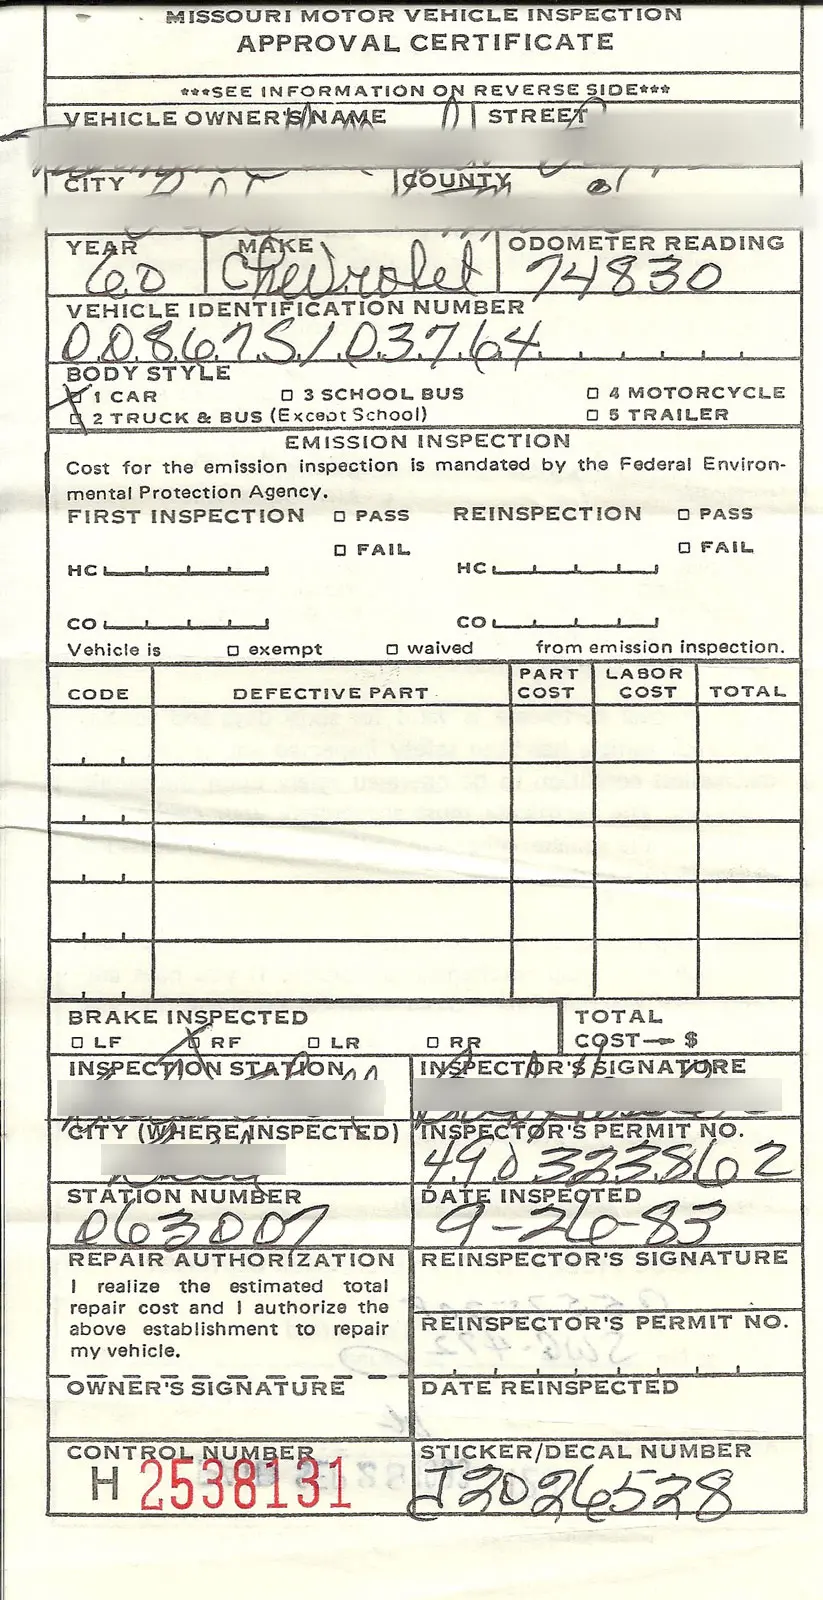 MISSOURI MOTOR VEHICLE INSPECTION
APPROVAL CERTIFICATE
***SEE INFORMATION ON REVERSE SIDE***
VEHICLE OWNER'S NAME STREET
CITY COUNTY
YEAR MAKE ODOMETER READING
60 Chevrolet 74830
VEHICLE IDENTIFICATION NUMBER
00867S103764
BODY STYLE
1 CAR 3 SCHOOL BUS 4 MOTORCYCLE
2 TRUCK & BUS (Except School) 5 TRAILER
EMISSION INSPECTION
Cost for the emission inspection is mandated by the Federal Environ-
mental Protection Agency.
FIRST INSPECTION PASS REINSPECTION PASS
FAIL FAIL
HC HC
CO CO
Vehicle is exempt waived from emission inspection.
CODE DEFECTIVE PART PART COST LABOR COST TOTAL
BRAKE INSPECTED TOTAL
LF RF LR RR COST → $
INSPECTION STATION INSPECTOR'S SIGNATURE
CITY (WHERE INSPECTED) INSPECTOR'S PERMIT NO.
490323862
STATION NUMBER DATE INSPECTED
063007 9-26-83
REPAIR AUTHORIZATION REINSPECTOR'S SIGNATURE
I realize the estimated total
repair cost and I authorize the
above establishment to repair REINSPECTOR'S PERMIT NO.
my vehicle.
OWNER'S SIGNATURE DATE REINSPECTED
CONTROL NUMBER STICKER/DECAL NUMBER
H 2538131 J2026528